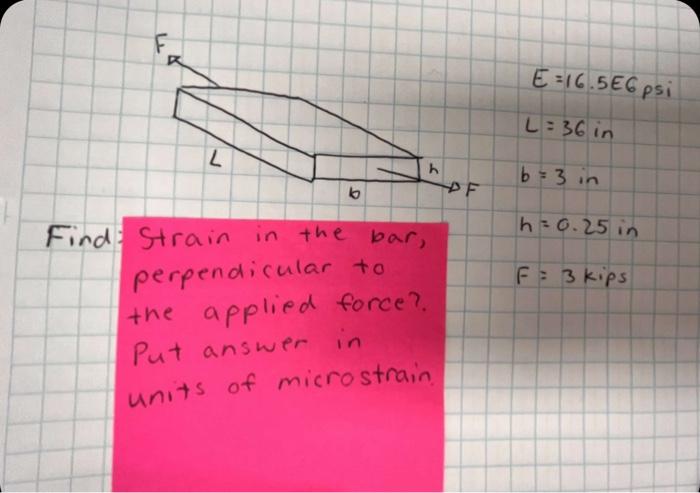 F
L
b
h
F
E = 16.5E6 psi
L = 36 in
b = 3 in
h = 0.25 in
F = 3 kips
Find: Strain in the bar,
perpendicular to
the applied force?.
Put answer in
units of microstrain.